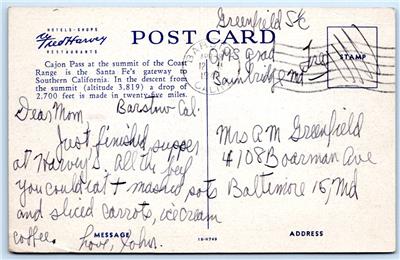 HOTELS - SHOPS
Fred Harvey
RESTAURANTS
POST CARD
Greenfield SK
Bainbridge Md
Free
STAMP
BARSTOW
CALIF
Cajon Pass at the summit of the Coast
Range is the Santa Fe's gateway to
Southern California. In the descent from
the summit (altitude 3,819) a drop of
2,700 feet is made in twenty-five miles.
Dear Mom, Barstow Cal.
Just finished supper
at Harvey's. All the beef
you could eat + mashed pots
and sliced carrots, ice cream
coffee. Love, John.
Mrs A M Greenfield
4108 Boarman Ave
Baltimore 15, Md
MESSAGE
1B-H749
ADDRESS